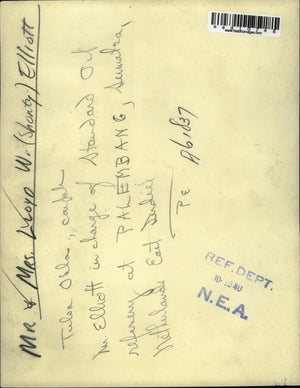 MR & MRS. LLOYD W. (Shorty) Elliott
Tulsa Okla., couple
Mr Elliott in charge of Standard Oil
refinery at PALEMBANG, Sumatra,
Netherlands East Indies
PE
REF. DEPT.
10-1940
N.E.A.